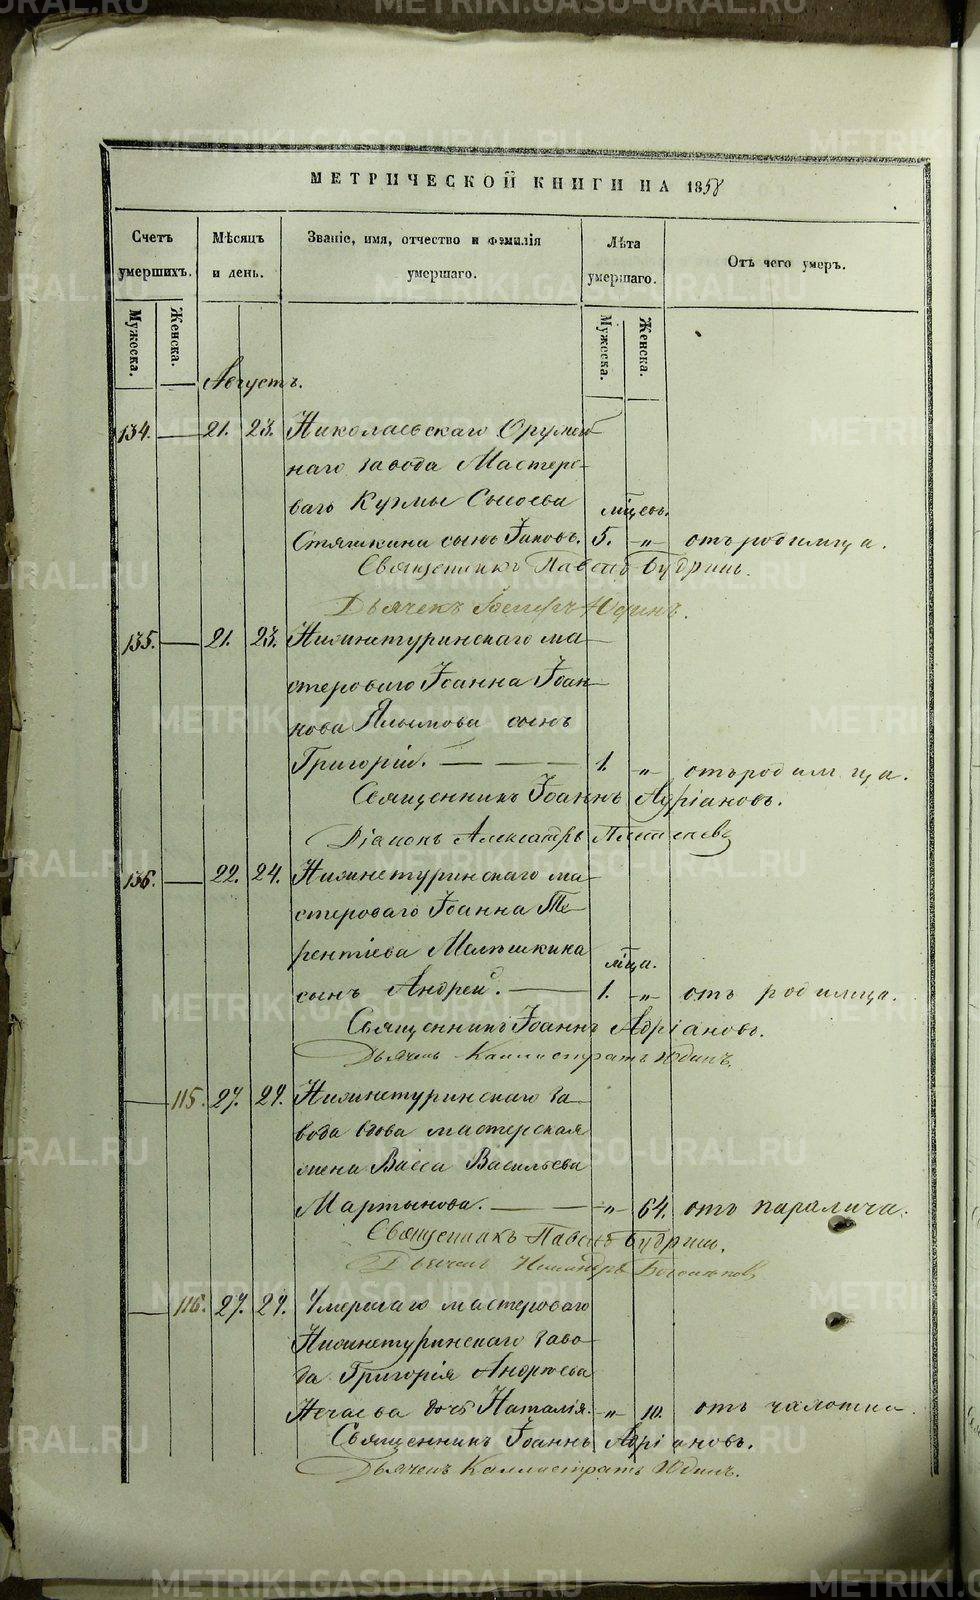 METRIKI.GASO-URAL.RU
МЕТРИЧЕСКОЙ КНИГИ НА 1858
Счетъ умершихъ.
Мѣсяцъ и день.
Званіе, имя, отчество и фэмилія умершаго.
Лѣта умершаго.
Отъ чего умеръ.
Мужеска.
Женска.
Мужеска.
Женска.
Августъ.
134. 21. 23. Николаевскаго Оружей-
наго завода Мастеро-
ваго Кузмы Сысоева
мѣсец.
Стяшкина сынъ Іаковъ. 5. „ отъ родимца.
Священникъ Павелъ Будрин.
Дьячекъ Іосифъ Юдинъ.
135. 21. 23. Нижнетуринскаго ма-
стероваго Іоанна Іоан-
нова Ялымова сынъ
Григорій. 1. „ отъ родимца.
Священникъ Іоаннъ Адріановъ.
Діаконъ Александръ
136. 22. 24. Нижнетуринскаго ма-
стероваго Іоанна Те-
рентіева Мелѣшкина
мѣца.
сынъ Андрей. 1. „ отъ родимца.
Священникъ Іоаннъ Адріановъ.
Дьячекъ Каллистратъ Юдинъ.
115. 27. 29. Нижнетуринскаго за-
вода вдова мастерская
жена Васса Васильева
Мартынова. „ 64. отъ паралича.
Священникъ Павелъ Будрин.
Дьячекъ
116. 27. 29. Умершаго мастероваго
Нижнетуринскаго заво-
да Григорія Андреева
Нечаева дочь Наталія. „ 10. отъ чахотки.
Священникъ Іоаннъ Адріановъ.
Дьячекъ Каллистратъ Юдинъ.